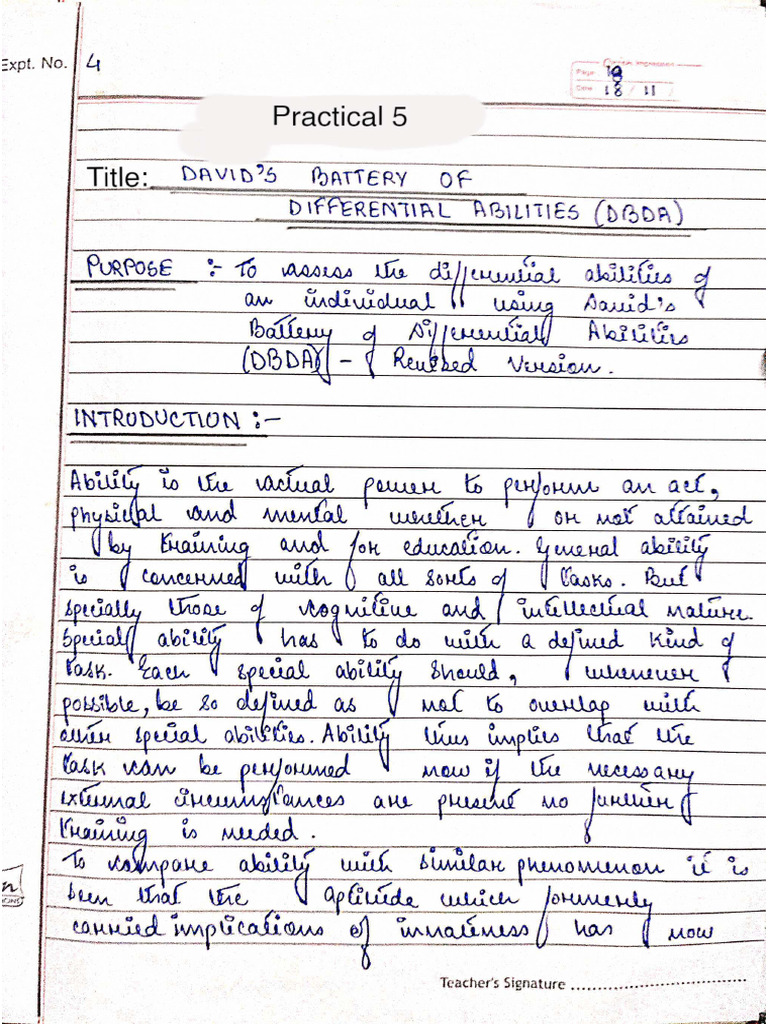 Expt. No. 4
Page 19
Date 18 / 11
Practical 5
Title: DAVID'S BATTERY OF
DIFFERENTIAL ABILITIES (DBDA)
PURPOSE :- To assess the differential abilities of
an individual using David's
Battery of Differential Abilities
(DBDA) - Revised Version.
INTRODUCTION :-
Ability is the actual power to perform an act,
physical and mental whether or not attained
by training and for education. General ability
is concerned with all sorts of tasks. But
specially those of cognitive and intellectual nature.
Special ability has to do with a defined kind of
task. Each special ability should, whenever
possible, be so defined as not to overlap with
other special abilities. Ability thus implies that the
task can be performed now if the necessary
external circumstances are present no further
training is needed.
To compare ability with similar phenomenon it is
seen that the aptitude which formerly
carried implications of innateness has now
Teacher's Signature